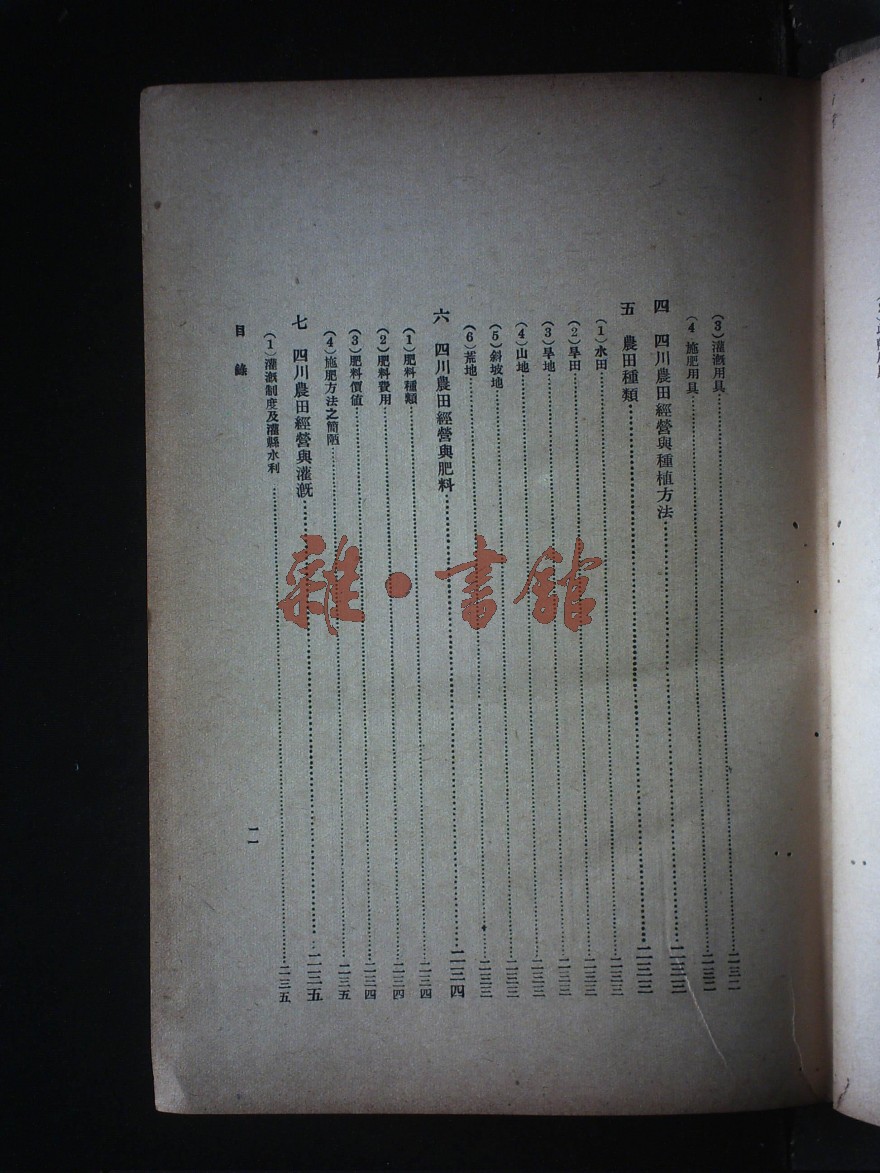 (3)灌漑用具……二三二
(4)施肥用具……二三二
四　四川農田經營與種植方法……二三三
五　農田種類……二三三
(1)水田……二三三
(2)旱田……二三三
(3)旱地……二三三
(4)山地……二三三
(5)斜坡地……二三三
(6)荒地……二三三
六　四川農田經營與肥料……二三四
(1)肥料種類……二三四
(2)肥料費用……二三四
(3)肥料價值……二三四
(4)施肥方法之簡陋……二三五
七　四川農田經營與灌漑……二三五
(1)灌漑制度及灌縣水利……二三五
目錄
一一
雜·書館